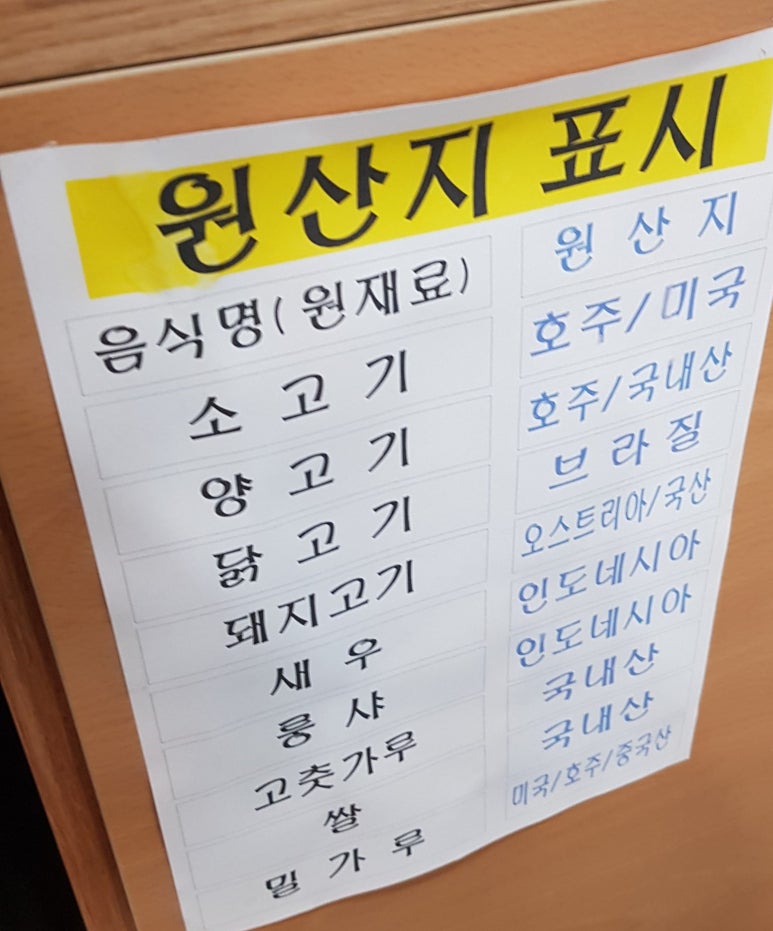 원산지 표시
음식명(원재료) 원 산 지
소 고 기 호주/미국
양 고 기 호주/국내산
닭 고 기 브 라 질
돼지고기 오스트리아/국산
새 우 인도네시아
룽 샤 인도네시아
고춧가루 국내산
쌀 국내산
밀 가 루 미국/호주/중국산